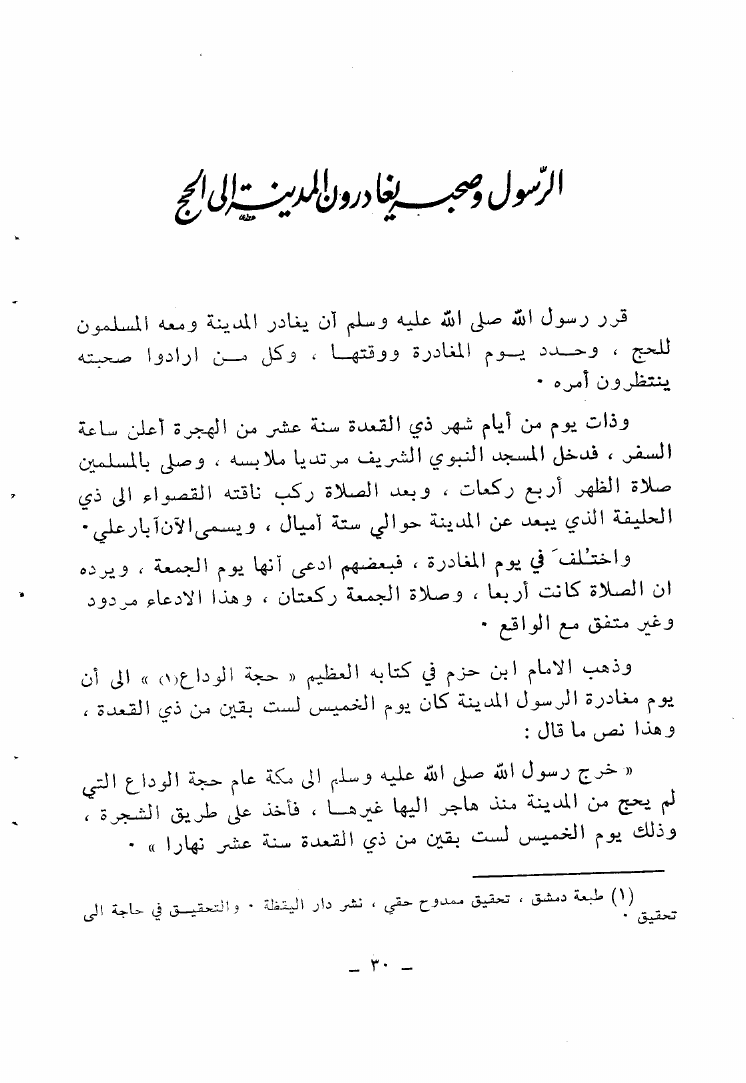 الرّسول وصحبه يغادرون المدينة إلى الحج
قرر رسول الله صلى الله عليه وسلم أن يغادر المدينة ومعه المسلمون
للحج ، وحدد يوم المغادرة ووقتها ، وكل من ارادوا صحبته
ينتظرون أمره ٠
وذات يوم من أيام شهر ذي القعدة سنة عشر من الهجرة أعلن ساعة
السفر ، فدخل المسجد النبوي الشريف مرتديا ملابسه ، وصلى بالمسلمين
صلاة الظهر أربع ركعات ، وبعد الصلاة ركب ناقته القصواء الى ذي
الحليفة الذي يبعد عن المدينة حوالي ستة أميال ، ويسمى الآن آبار علي ٠
واختلف في يوم المغادرة ، فبعضهم ادعى أنها يوم الجمعة ، ويرده
ان الصلاة كانت أربعا ، وصلاة الجمعة ركعتان ، وهذا الادعاء مردود
وغير متفق مع الواقع ٠
وذهب الامام ابن حزم في كتابه العظيم « حجة الوداع(١) » الى أن
يوم مغادرة الرسول المدينة كان يوم الخميس لست بقين من ذي القعدة ،
وهذا نص ما قال :
« خرج رسول الله صلى الله عليه وسلم الى مكة عام حجة الوداع التي
لم يحج من المدينة منذ هاجر اليها غيرها ، فأخذ على طريق الشجرة ،
وذلك يوم الخميس لست بقين من ذي القعدة سنة عشر نهارا » ٠
(١) طبعة دمشق ، تحقيق ممدوح حقي ، نشر دار اليقظة ٠ والتحقيق في حاجة الى
تحقيق ٠
– ٣٠ –